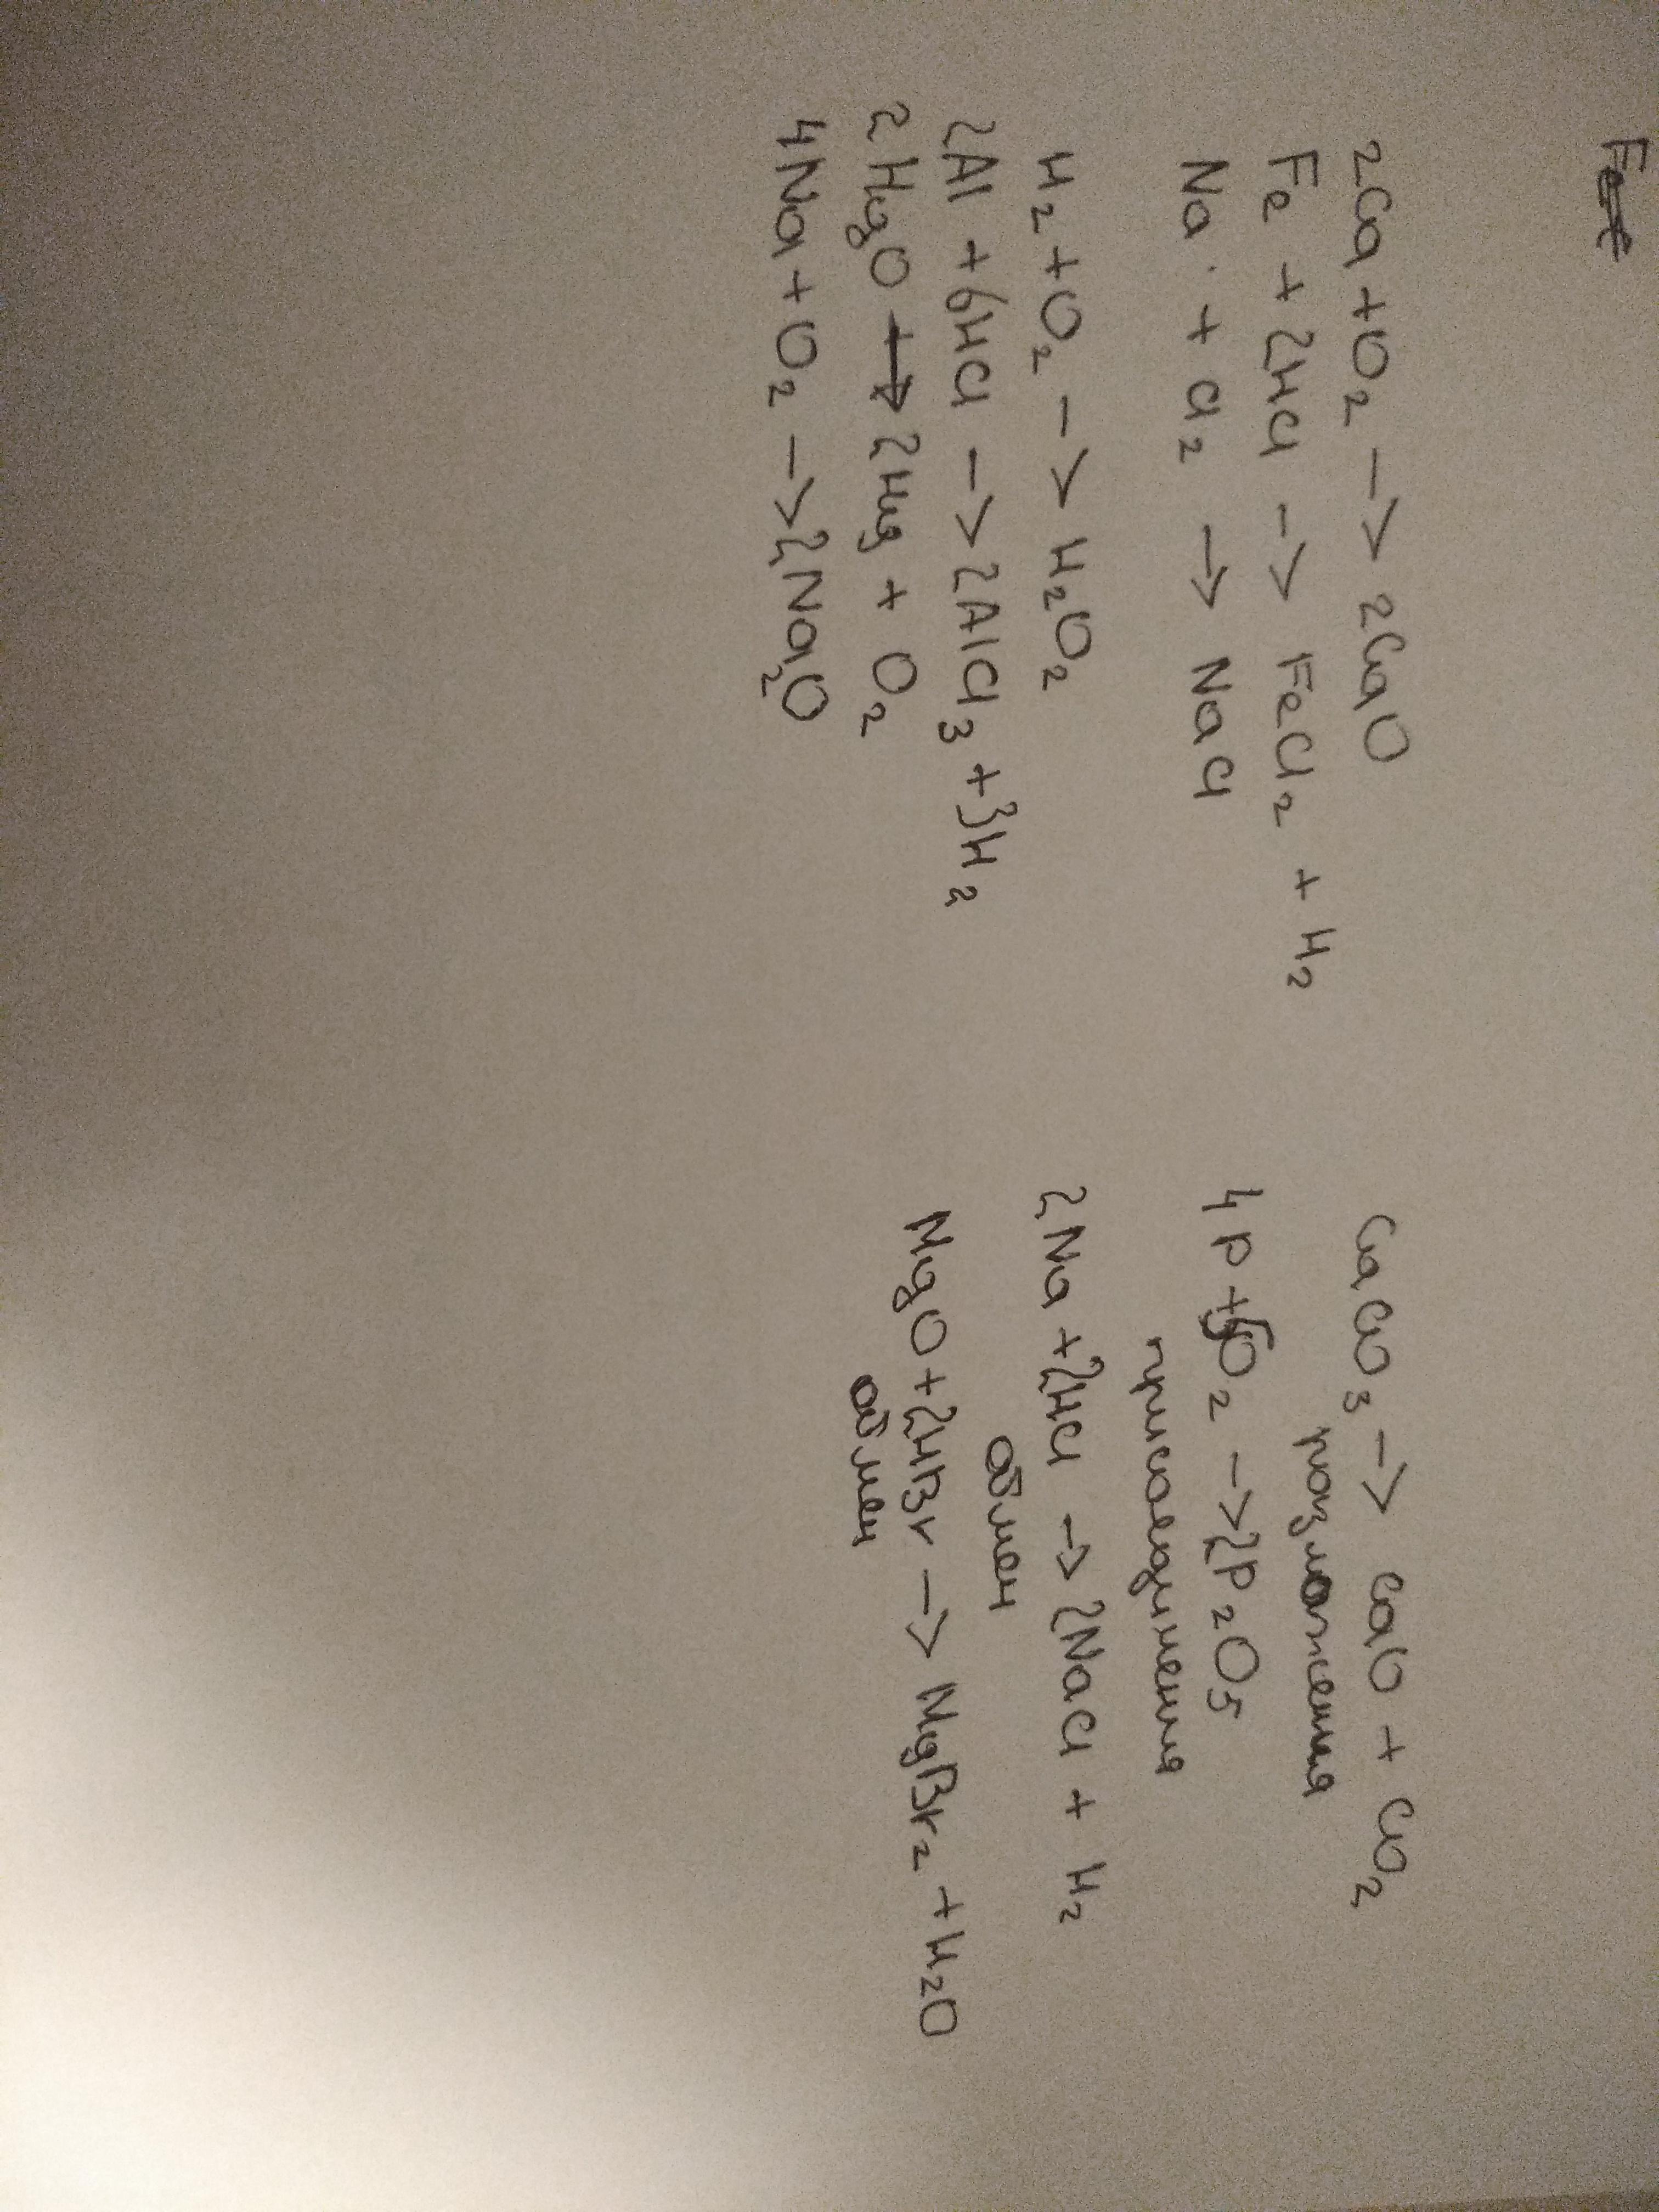 2Ca + O₂ -> 2CaO
Fe + 2HCl -> FeCl₂ + H₂
Na + Cl₂ -> NaCl
H₂ + O₂ -> H₂O₂
2Al + 6HCl -> 2AlCl₃ + 3H₂
2HgO -> 2Hg + O₂
4Na + O₂ -> 2Na₂O
CaCO₃ -> CaO + CO₂
разложения
4P + 5O₂ -> 2P₂O₅
присоединения
2Na + 2HCl -> 2NaCl + H₂
обмен
MgO + 2HBr -> MgBr₂ + H₂O
обмен